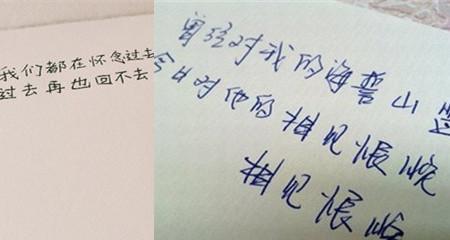 我们都在怀念过去
过去再也回不去
曾经对我的海誓山盟
今日对他的相见恨晚
相见恨晚